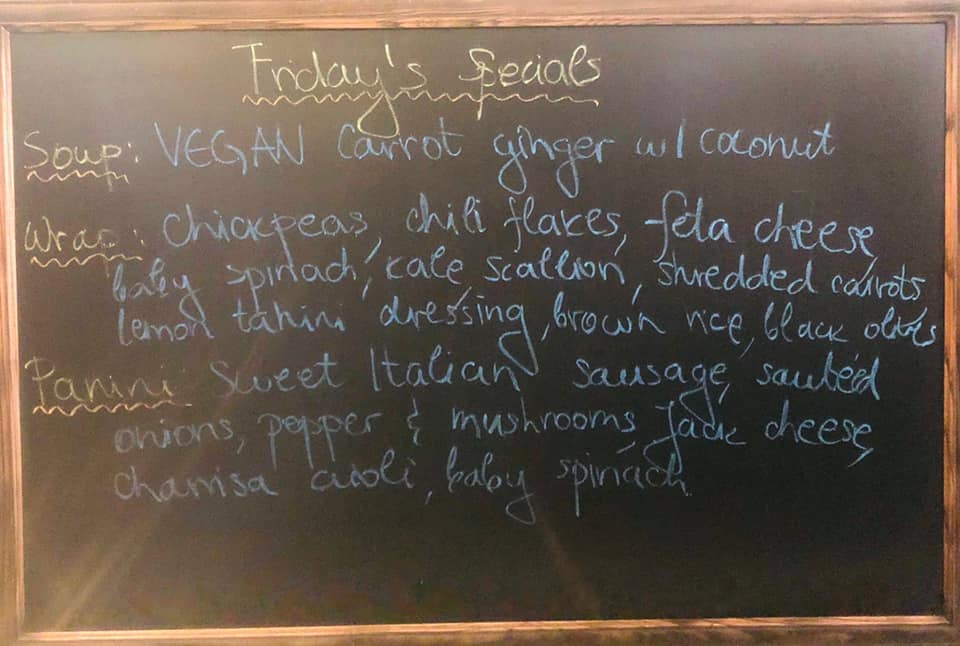 Friday's Specials
Soup: VEGAN Carrot ginger w/ coconut
Wrap: chickpeas, chili flakes, feta cheese,
baby spinach, kale, scallion, shredded carrots
lemon tahini dressing, brown rice, black olives
Panini: Sweet Italian sausage, sautéed
onions, pepper & mushrooms, Jack cheese,
aioli, baby spinach